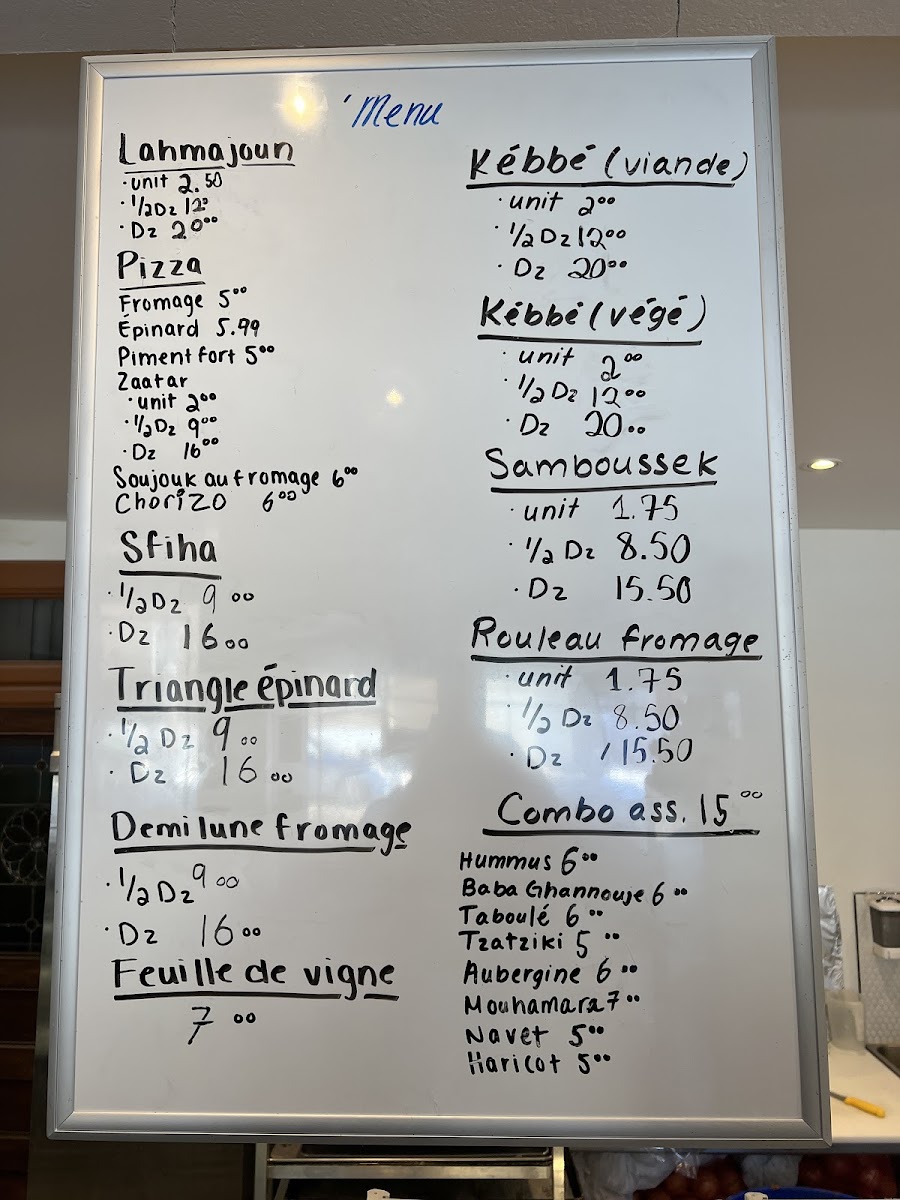 Menu
Lahmajoun
· unit 2.50
· 1/2 Dz 12⁰⁰
· Dz 20⁰⁰
Pizza
Fromage 5⁰⁰
Épinard 5.99
Piment fort 5⁰⁰
Zaatar
· unit 2⁰⁰
· 1/2 Dz 9⁰⁰
· Dz 16⁰⁰
Soujouk au fromage 6⁰⁰
Chorizo 6⁰⁰
Sfiha
· 1/2 Dz 9 ⁰⁰
· Dz 16 ⁰⁰
Triangle épinard
· 1/2 Dz 9 ⁰⁰
· Dz 16 ⁰⁰
Demi lune fromage
· 1/2 Dz 9 ⁰⁰
· Dz 16 ⁰⁰
Feuille de vigne
7 ⁰⁰
Kébbé (viande)
· unit 2⁰⁰
· 1/2 Dz 12⁰⁰
· Dz 20⁰⁰
Kébbé (végé)
· unit 2⁰⁰
· 1/2 Dz 12⁰⁰
· Dz 20⁰⁰
Samboussek
· unit 1.75
· 1/2 Dz 8.50
· Dz 15.50
Rouleau fromage
· unit 1.75
· 1/2 Dz 8.50
· Dz 15.50
Combo ass. 15⁰⁰
Hummus 6⁰⁰
Baba Ghannouje 6⁰⁰
Taboulé 6⁰⁰
Tzatziki 5⁰⁰
Aubergine 6⁰⁰
Mouhamara 7⁰⁰
Navet 5⁰⁰
Haricot 5⁰⁰